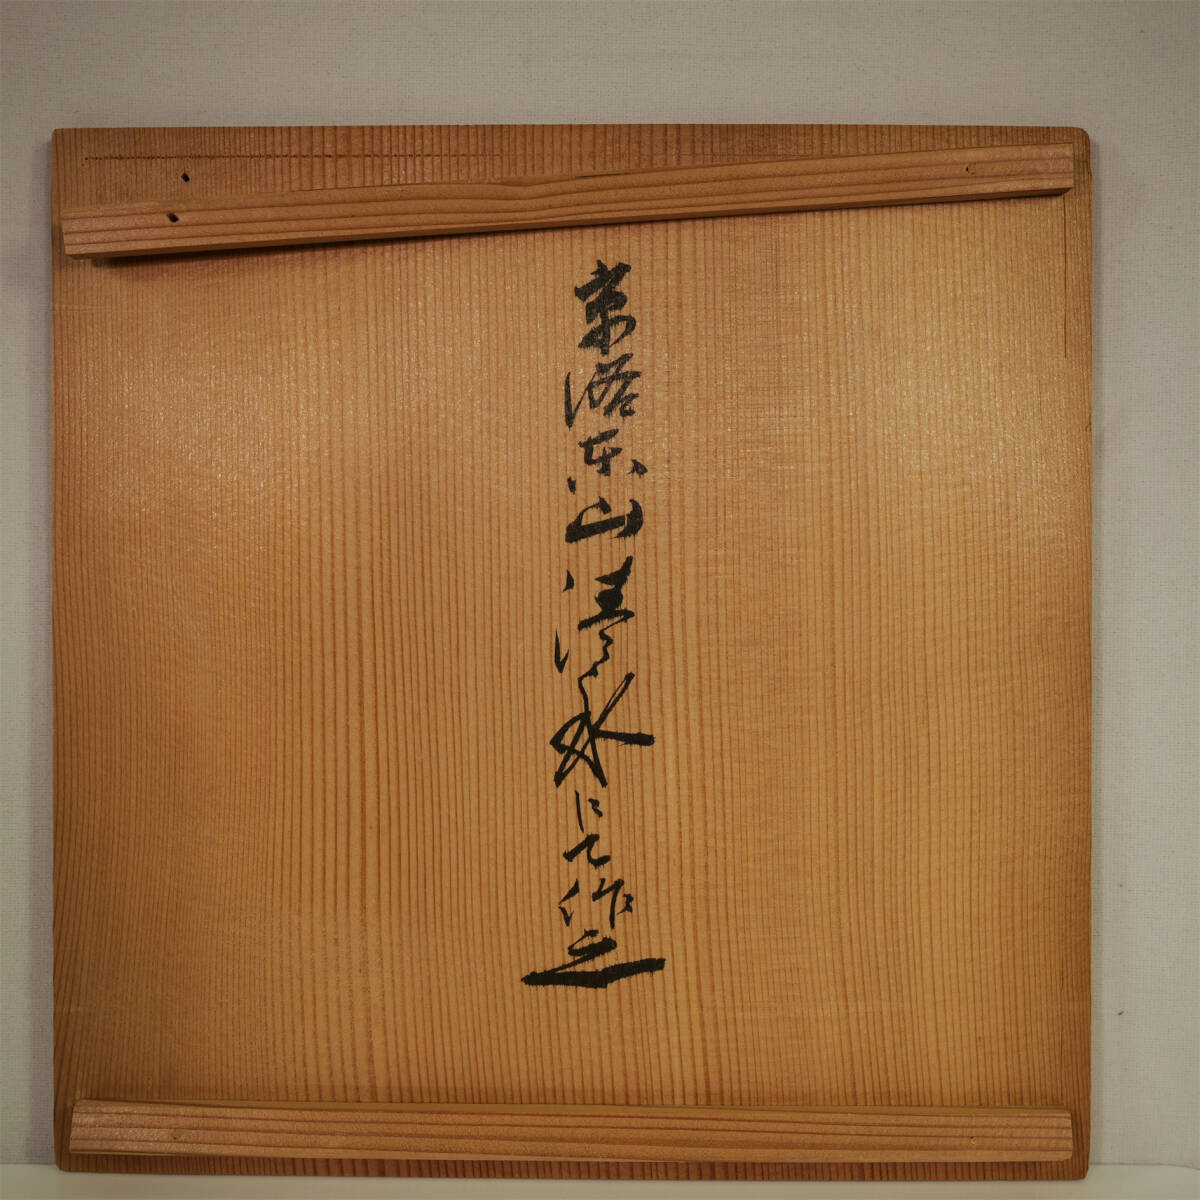 京洛東山清水にて作之